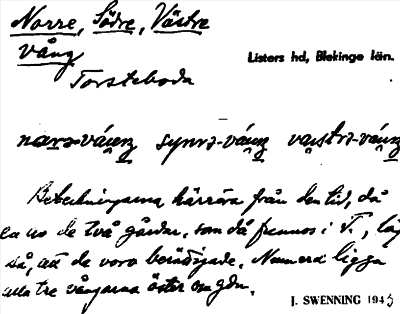 Norre, Södre, Västre
Vång
Listers hd, Blekinge län.
Torsteboda
narə-váuŋ synrə-váuŋ vaistrə-váuŋ
Beteckningarna härröra från den tid, då
en av de två gårdar, som då funnos i T., låg
så, att de voro berättigade. Numera ligga
alla tre vångarna öster om gdn.
J. SWENNING 1945